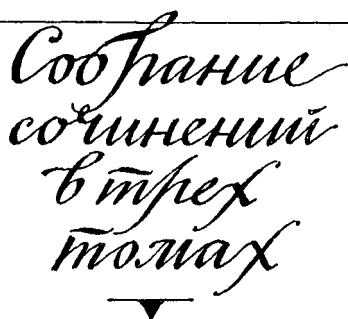 Собрание
сочинений
в трех
томах